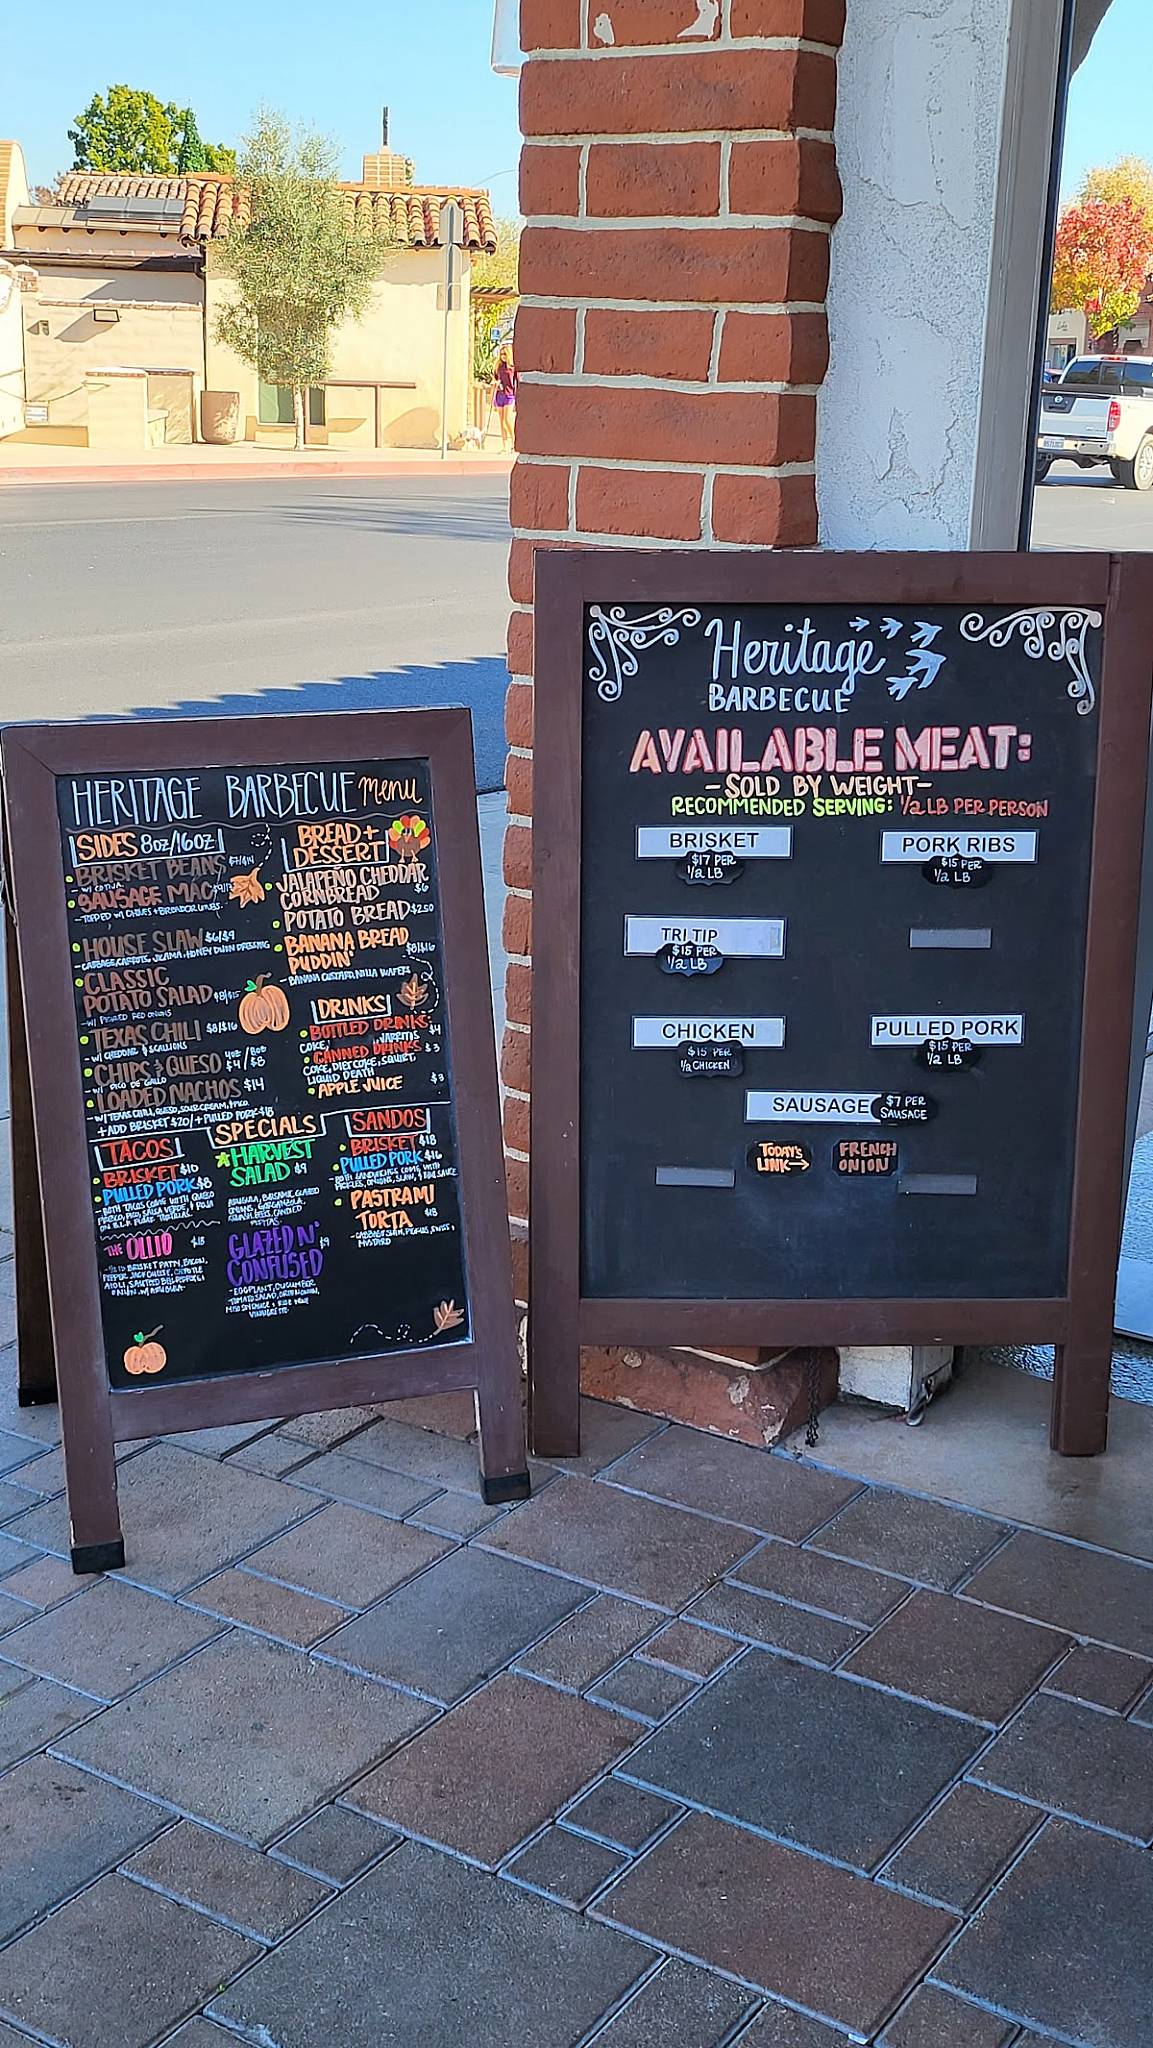 HERITAGE BARBECUE menu
SIDES 8oz/16oz
BRISKET BEANS $7/$14
- W/ COTIJA
SAUSAGE MAC
- TOPPED W/ CHIVES + BREADCRUMBS
HOUSE SLAW $6/$9
- CABBAGE, CARROTS, JICAMA, HONEY DIJON DRESSING
CLASSIC
POTATO SALAD $8/$15
- W/ PICKLED RED ONIONS
TEXAS CHILI $8/$16
- W/ CHEDDAR & SCALLIONS
CHIPS & QUESO 4oz/8oz $4/$8
- W/ PICO DE GALLO
LOADED NACHOS $14
- W/ TEXAS CHILI, QUESO, SOUR CREAM, PICO
+ ADD BRISKET $20/ + PULLED PORK $18
BREAD +
DESSERT
JALAPEÑO CHEDDAR
CORNBREAD $6
POTATO BREAD $2.50
BANANA BREAD
PUDDIN' $8/$16
- BANANA CUSTARD, NILLA WAFERS
DRINKS
BOTTLED DRINKS $4
COKE, JARRITOS
CANNED DRINKS $3
COKE, DIET COKE, SQUIRT,
LIQUID DEATH
APPLE JUICE $3
TACOS
BRISKET $10
PULLED PORK $8
- BOTH TACOS COME WITH QUESO
FRESCO, PICO, SALSA VERDE, & ROJA
THE OLLIO $15
- 1/2 lb BRISKET PATTY, BACON,
PEPPER JACK CHEESE, CHIPOTLE
AIOLI,
W/ ARUGULA
SPECIALS
HARVEST
SALAD $9
ARUGULA, BALSAMIC GLAZED
ONIONS, GORGONZOLA,
CANDIED
PEPITAS
GLAZED N'
CONFUSED $9
- EGGPLANT, CUCUMBER
TOMATO SALAD, GREEN ONION,
MISO
VINAIGRETTE
SANDOS
BRISKET $18
PULLED PORK $16
- BOTH SANDWICHES COME WITH
PICKLES, ONIONS, SLAW, & BBQ SAUCE
PASTRAMI
TORTA $18
- CABBAGE SLAW, PICKLES, SWISS,
MUSTARD
Heritage
BARBECUE
AVAILABLE MEAT:
- SOLD BY WEIGHT -
RECOMMENDED SERVING: 1/2 LB PER PERSON
BRISKET
$17 PER
1/2 LB
PORK RIBS
$15 PER
1/2 LB
TRI TIP
$15 PER
1/2 LB
CHICKEN
$15 PER
1/2 CHICKEN
PULLED PORK
$15 PER
1/2 LB
SAUSAGE
$7 PER
SAUSAGE
TODAY'S
LINK→
FRENCH
ONION